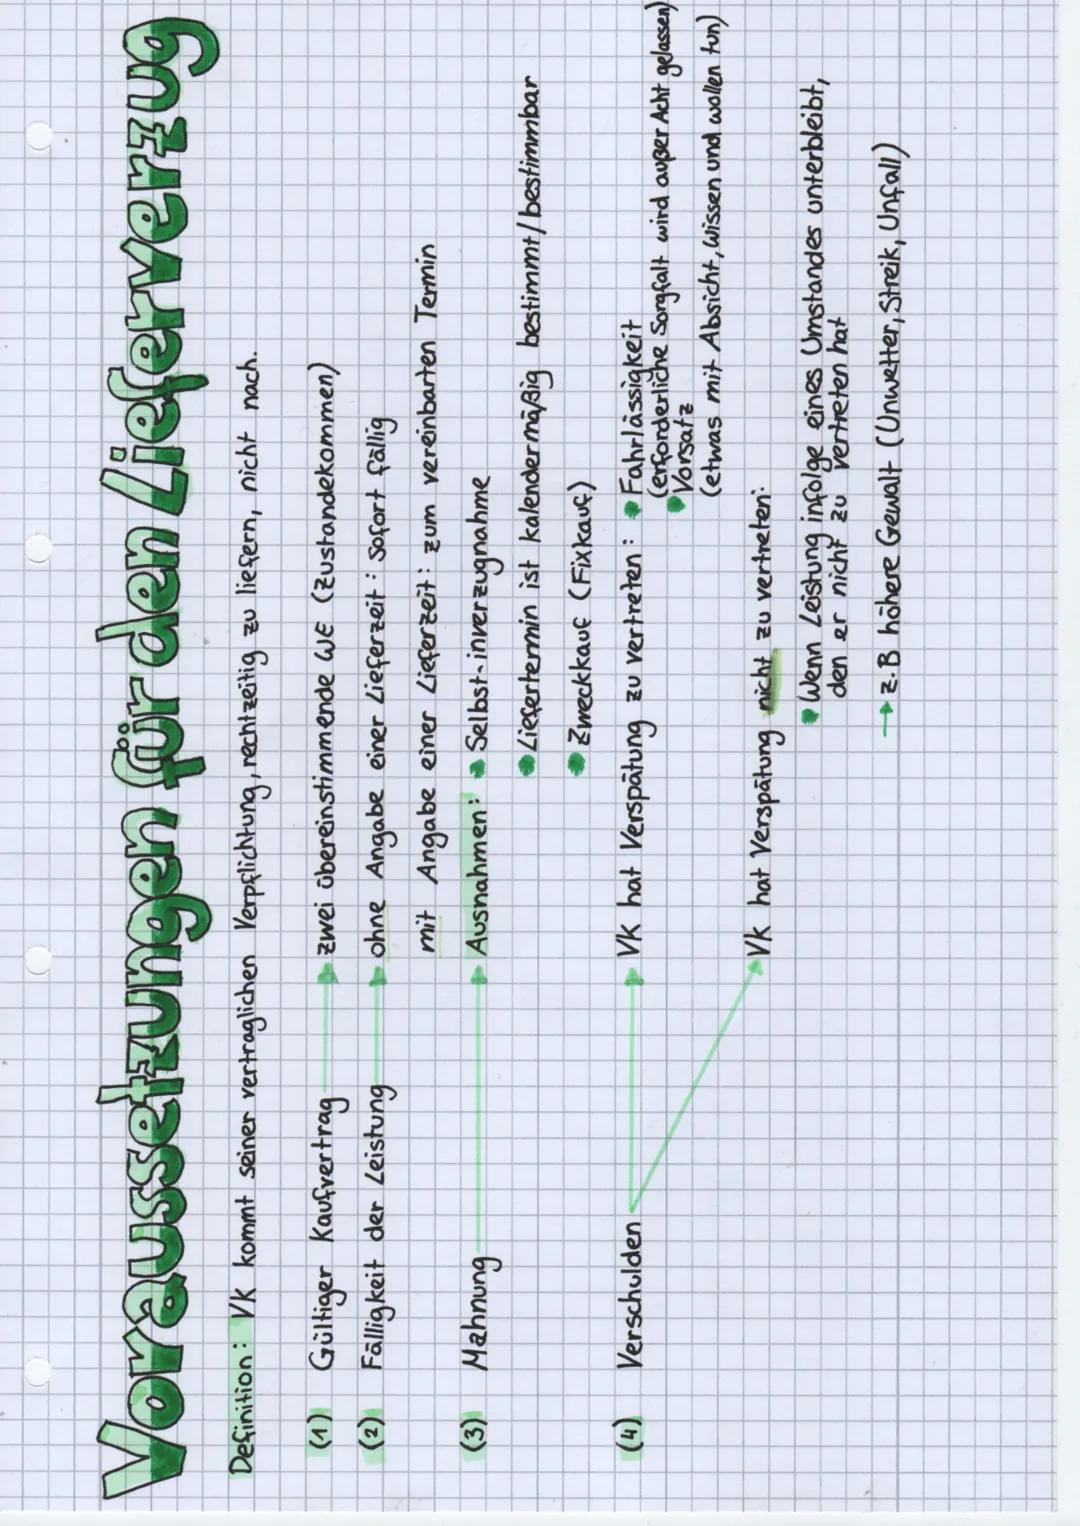 Voraussetzungen für den Lieferverzug
Definition: VK kommt seiner vertraglichen Verpflichtung, rechtzeitig zu liefern, nicht nach.
(1) Gültiger Kaufvertrag → zwei übereinstimmende WE (Zustandekommen)
(2) Fälligkeit der Leistung → ohne Angabe einer Lieferzeit: Sofort fällig
mit Angabe einer Lieferzeit: zum vereinbarten Termin
(3) Mahnung → Ausnahmen: • Selbst-inverzugnahme
• Liefertermin ist kalendermäßig bestimmt/bestimmbar
• Zweckkauf (Fixkauf)
(4) Verschulden → VK hat Verspätung zu vertreten: • Fahrlässigkeit
(erforderliche Sorgfalt wird außer Acht gelassen)
• Vorsatz
(etwas mit Absicht, wissen und wollen tun)
→ VK hat Verspätung nicht zu vertreten:
• Wenn Leistung infolge eines Umstandes unterbleibt,
den er nicht zu vertreten hat
→ z.B höhere Gewalt (Unwetter, Streik, Unfall)